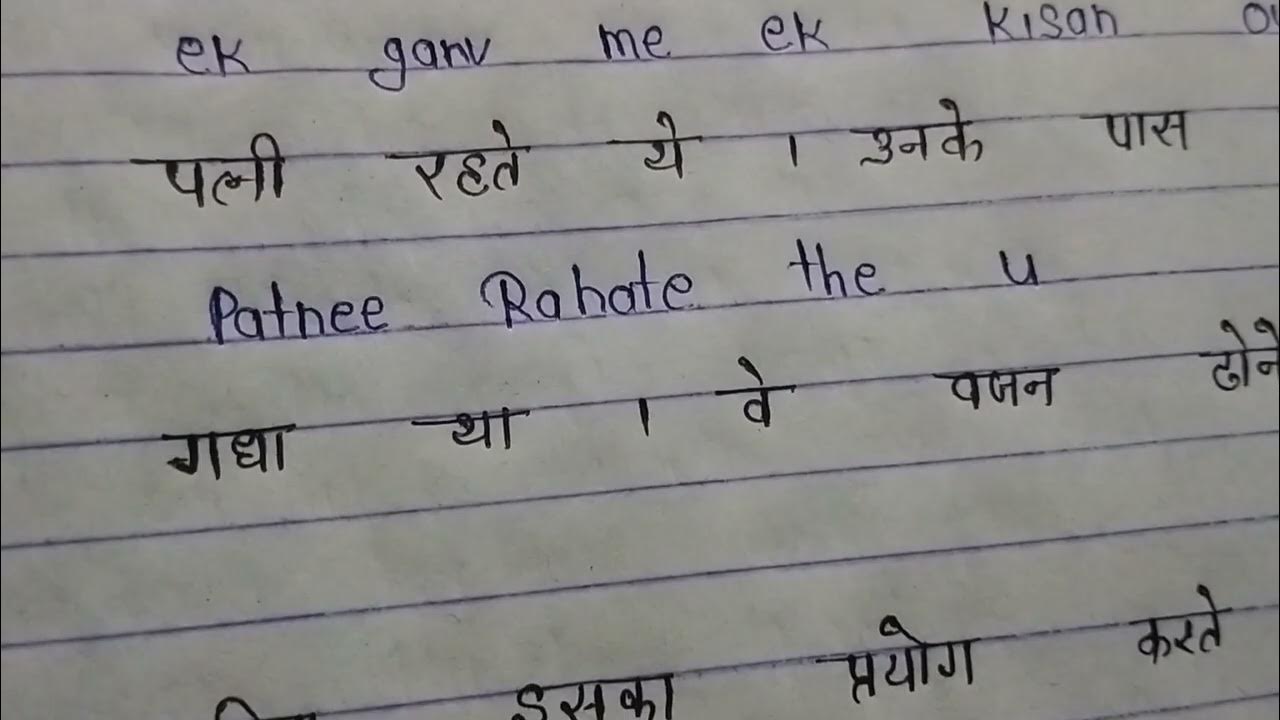 ek ganv me ek kisan
पत्नी रहते थे । उनके पास
Patnee Rahate the u
गधा था । वे वजन ढोने
इसका प्रयोग करते